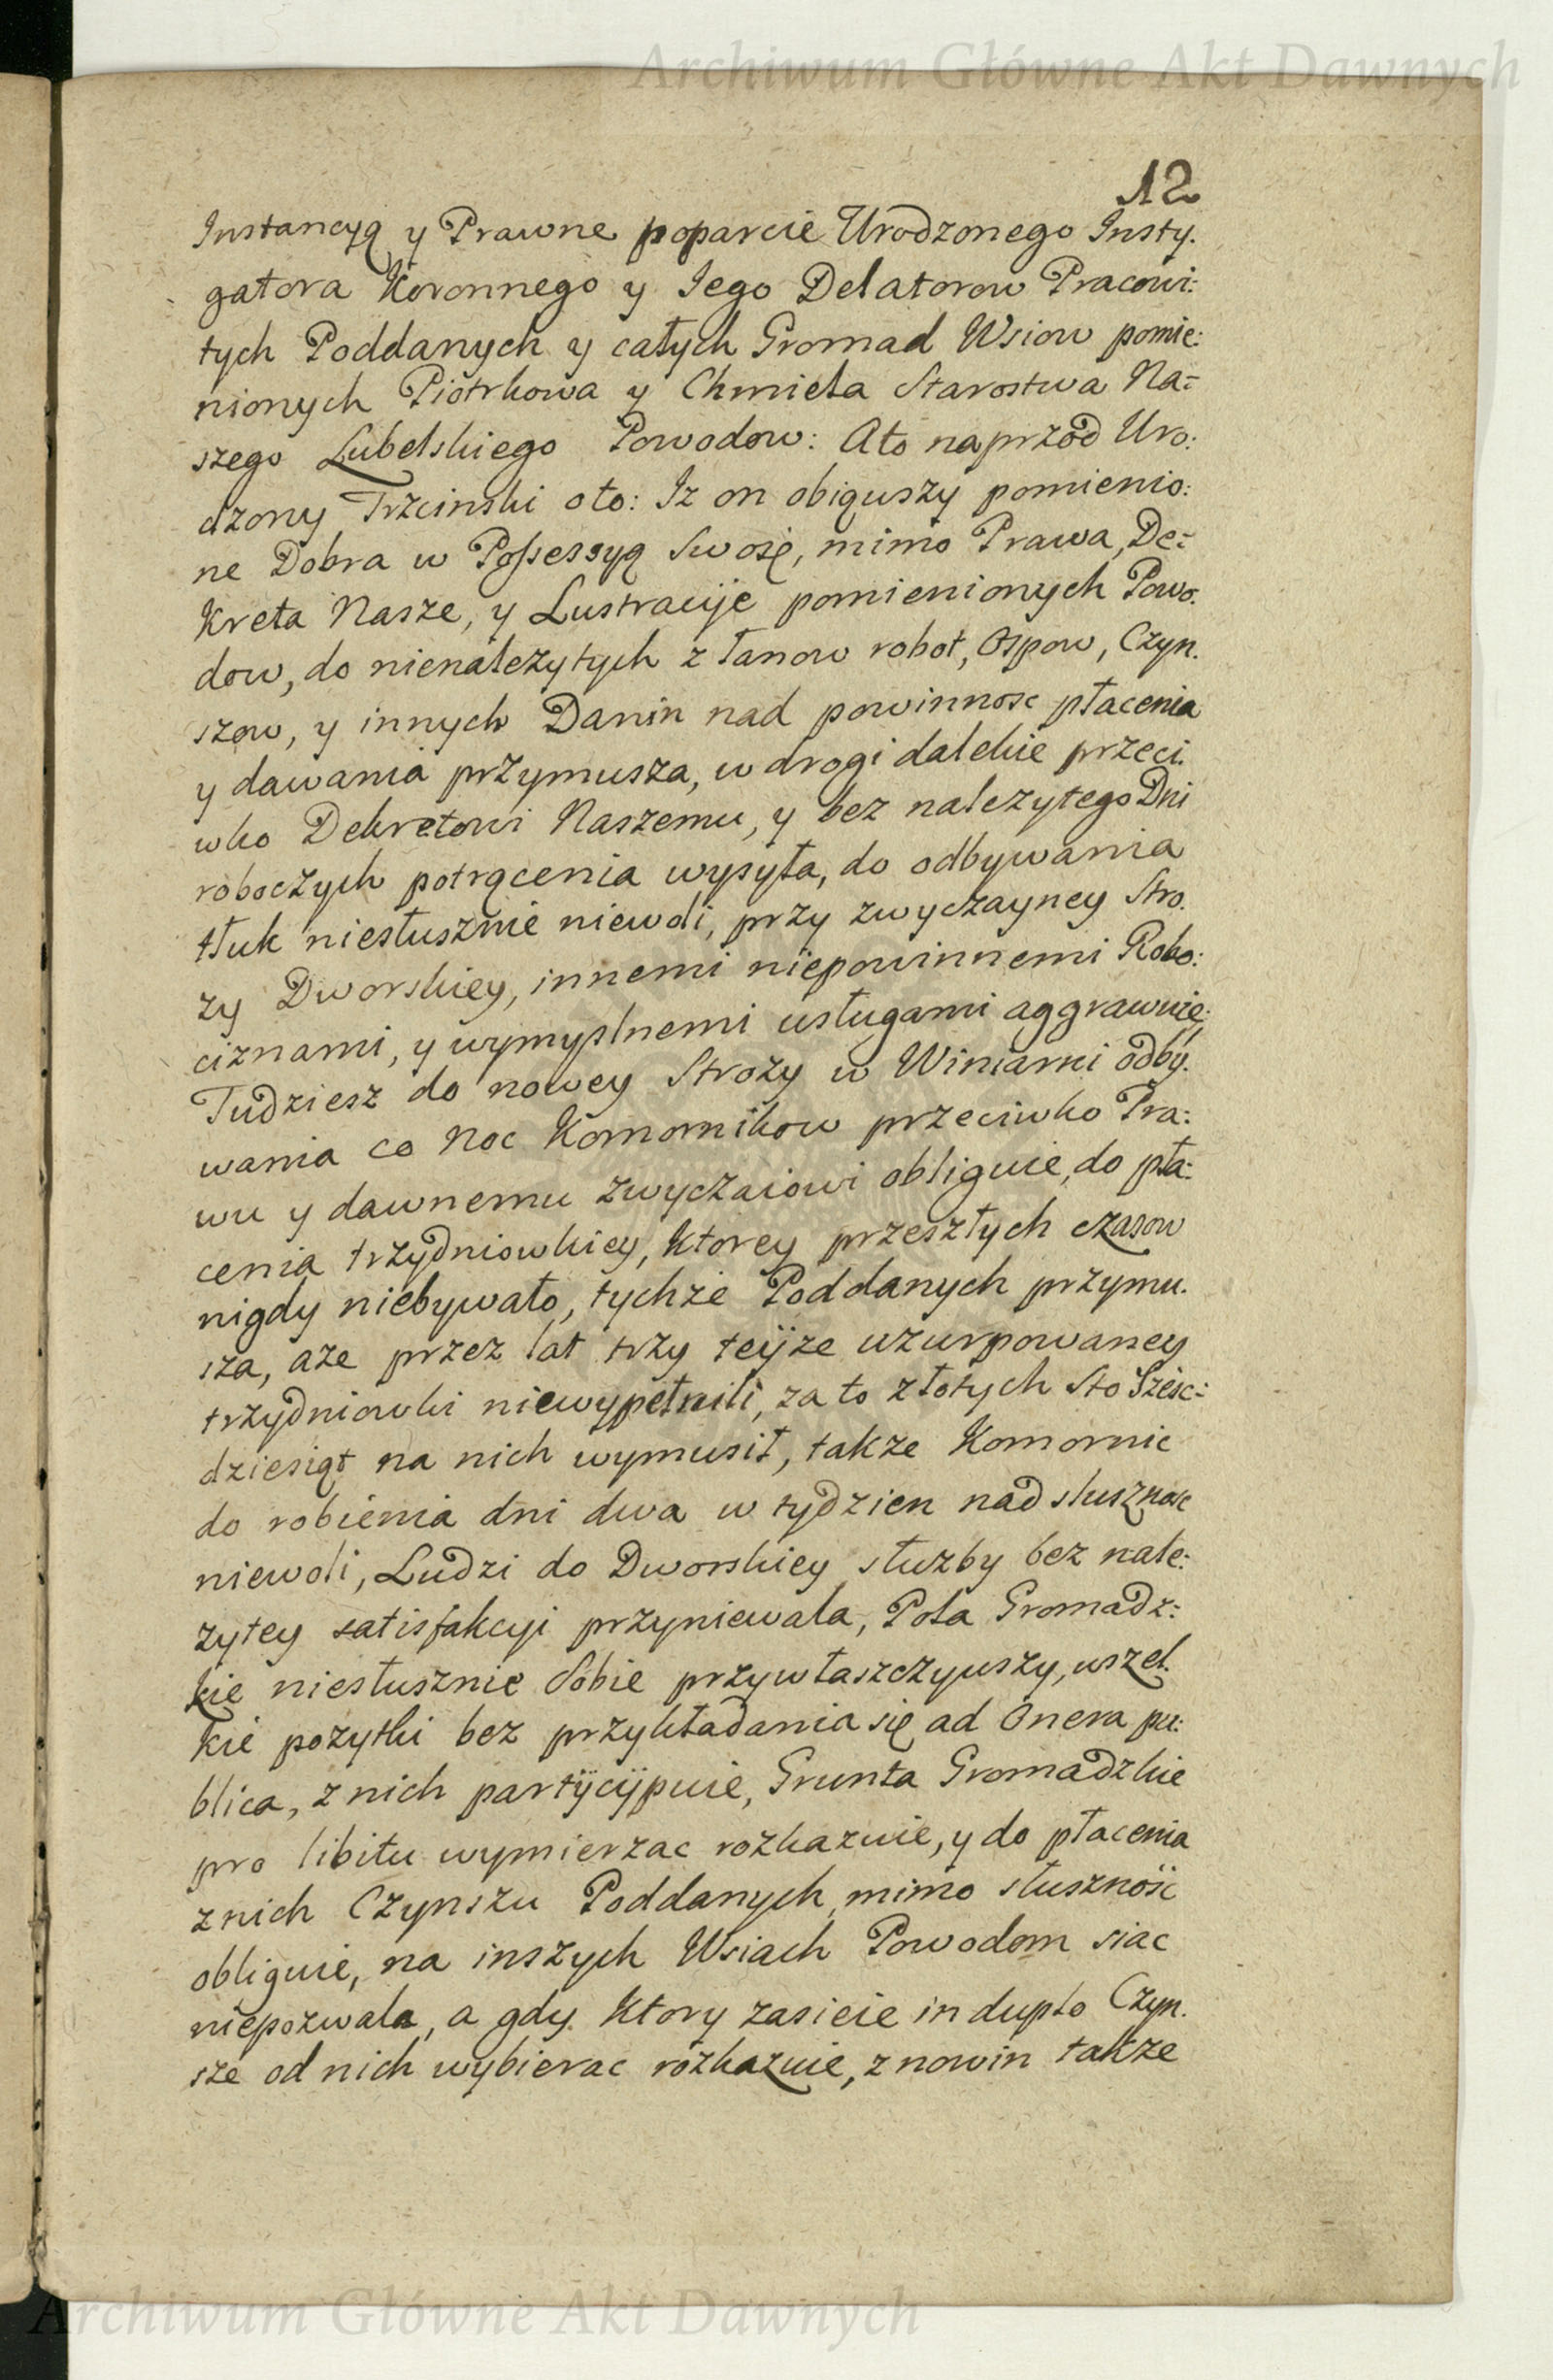 Archiwum Główne Akt Dawnych
12
Instancyą y Prawne poparcie Urodzonego Insty.
gatora Koronnego y Iego Delatorow Pracowi:
tych Poddanych y całych Gromad Wsiow pomie:
nionych Piotrkowa y Chmiela Starostwa Na:
szego Lubelskiego Powodow: Ato naprzod Uro:
dzony Trzcinski oto: Iz on obiąuszy pomienio:
ne Dobra w Possessyą Swoię, mimo Prawa, De:
Kreta Nasze, y Lustracyje pomienionych Powo.
dow, do nienalezytych z łanow robot, Ospow, Czyn.
szow, y innych Danin nad powinnosc płacenia
y dawania przymusza, w drogi dalekie przeci.
wko Dekretowi Naszemu, y bez nalezytego Dni
roboczych potrącenia wysyła, do odbywania
tłuk niesłusznie niewoli, przy zwyczayney Stro.
zy Dworskiey, innemi niepowinnemi Robo:
ciznami, y wymyslnemi usługami aggrawuie.
Tudziesz do nowey Strozy w Winiarni odby.
wania co Noc Komornikow przeciwko Pra:
wu y dawnemu zwyczaiowi obliguie, do pła:
cenia trzydniowkiey, Ktorey przeszłych czasow
nigdy niebywało, tychze Poddanych przymu.
sza, aze przez lat trzy teÿze uzurpowaney
trzydniowki niewypełnili, za to złotych Sto Szesc:
dziesiąt na nich wymusił, takze Komornic
do robienia dni dwa w tydzien nad słusznosc
niewoli, Ludzi do Dworskiey słuzby bez nale:
zytey satisfakcyi przyniewala, Pola Gromadz:
kie niesłusznie Sobie przywłaszczyuszy, wszel.
Kie pozytki bez przykładania się ad Onera pu:
blica, z nich partÿcÿpuie, Grunta Gromadzkie
pro libitu wymierzac rozkazuie, y do płacenia
z nich Czynszu Poddanych, mimo słusznośc
obliguie, na inszych Wsiach Powodom siac
niepozwala, a gdy Ktory zasieie in duplo Czyn.
sze od nich wybierac rozkazuie, z nowin takze
Archiwum Główne Akt Dawnych